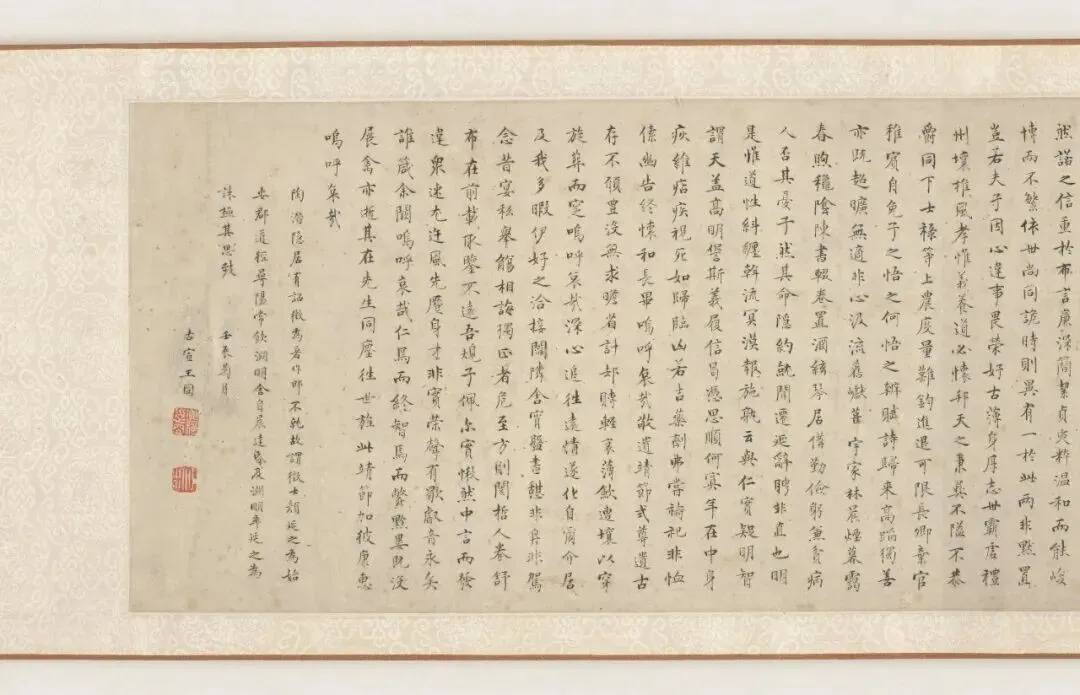 然諾之信重於布言廉深簡絜貞夷粹温和而能峻
博而不繁依世尚同詭時則異有一於此兩非默置
豈若夫子因心違事畏榮好古薄身厚志世霸虛禮
州壤推風孝惟義養道必懷邦天之秉彝不隘不恭
爵同下士祿等上農度量難鈞進退可限長卿棄官
稚賓自免子之悟之何悟之辯賦詩歸来高蹈獨善
亦既超曠無適非心汲流舊巘葺宇家林晨煙暮靄
春煦穐陰陳書輟卷置酒絃琴居備勤儉躬兼貧病
人否其憂子然其命隱約就閒遷延辭聘非直也明
是惟道性糾纏斡流冥漠報施孰云與仁實疑明智
謂天蓋高明諐斯義履信曷憑思順何寘年在中身
疢維痁疾視死如歸臨凶若吉藥劑弗嘗禱祀非恤
傃幽告終懷和長畢嗚呼哀哉敬遺靖節式尊遺古
存不願豐沒無求贍省訃却賻輕哀薄斂遭壤以穿
旋葬而窆嗚呼哀哉深心追往遠情逐化自爾介居
及我多暇伊好之洽接閻隣舍宵盤晝憩非舟非駕
念昔宴私舉觴相誨獨正者危至方則閡哲人卷舒
布在前載取鑒不遠吾規子佩尔實愀然中言而發
違衆速尤迕風先蹷身才非實榮聲有歇叡音永矣
誰箴余闕嗚呼哀哉仁焉而終智焉而斃黔婁既沒
展禽亦逝其在先生同塵往世旌此靖節加彼康惠
嗚呼哀哉
陶潛隱居有詔徵為著作郎不就故謂徵士顏延之為始
安郡道經尋陽常飲淵明舍自晨達昏及淵明卒延之為
誄極其思致
壬辰菊月
古宣王